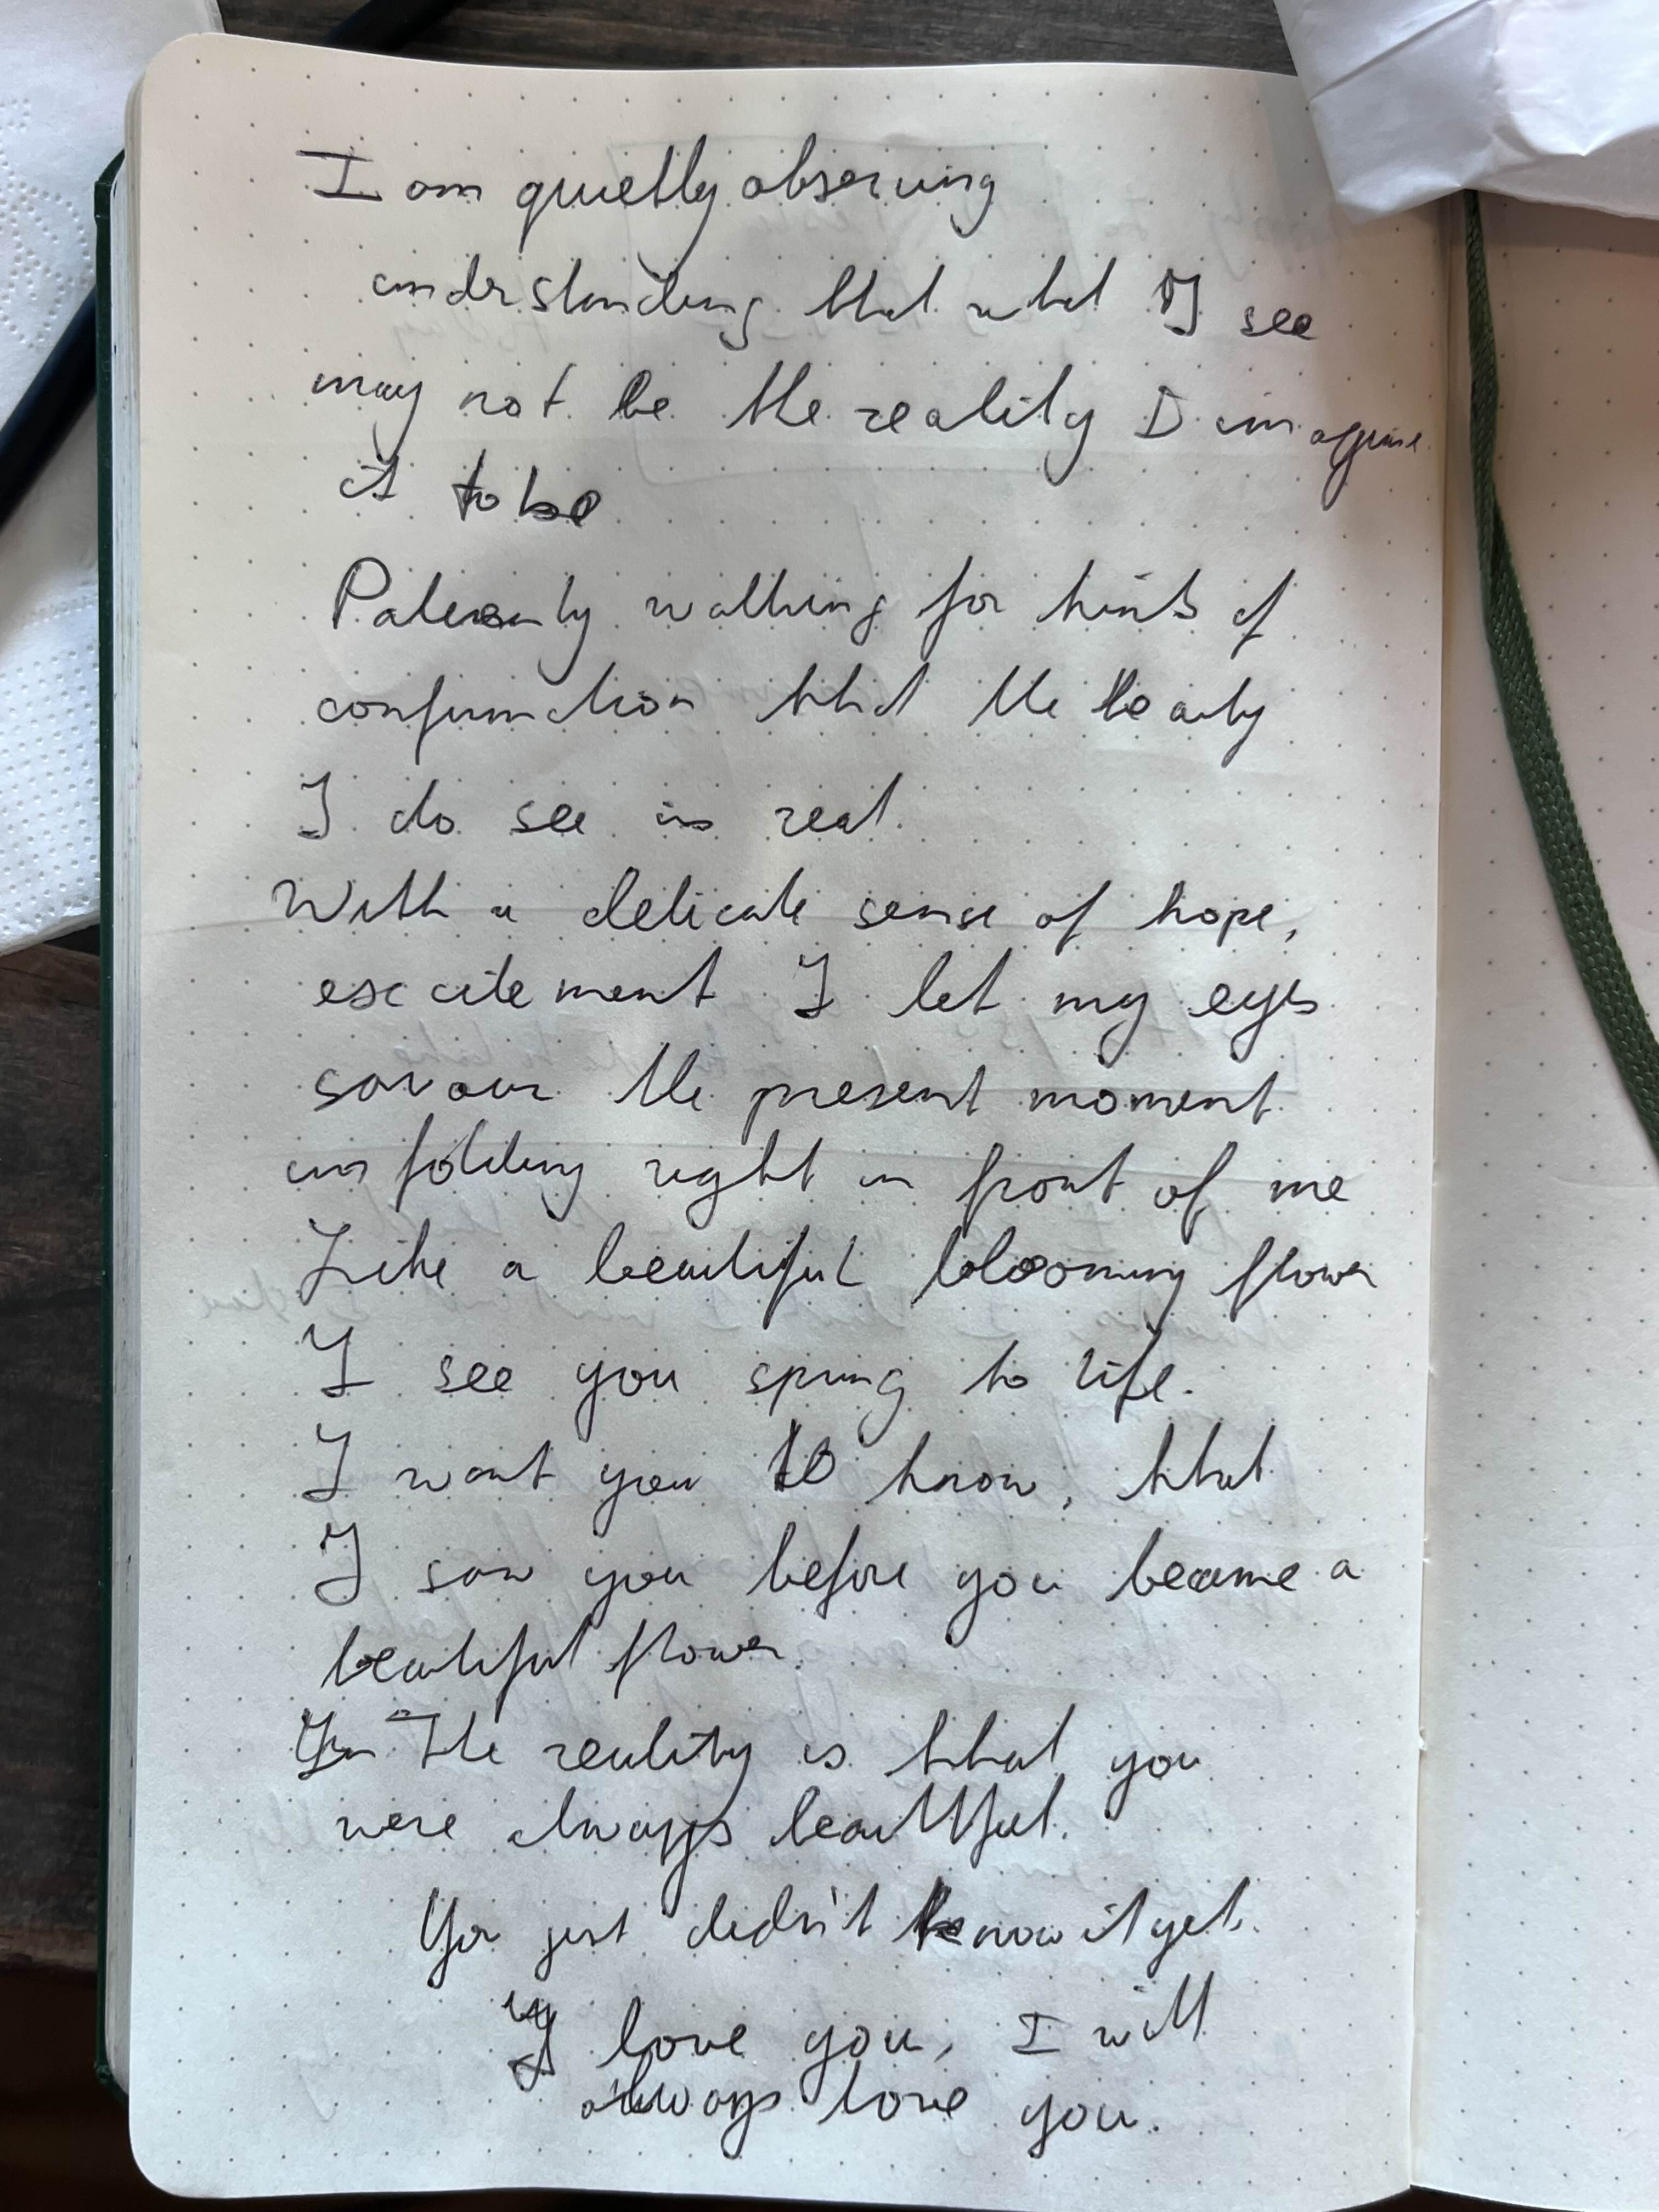 I am quietly observing
understanding that what I see
may not be the reality I imagine
it to be
Patiently waithing for hints of
confirmation that the beauty
I do see is real.
With a delicate sense of hope,
excitement I let my eyes
savour the present moment
unfolding right in front of me
Like a beautiful blooming flower
I see you spring to life.
I want you to know, that
I saw you before you became a
beautiful flower.
In The reality is that you
were always beautiful.
You just didn't know it yet.
I love you, I will
always love you.